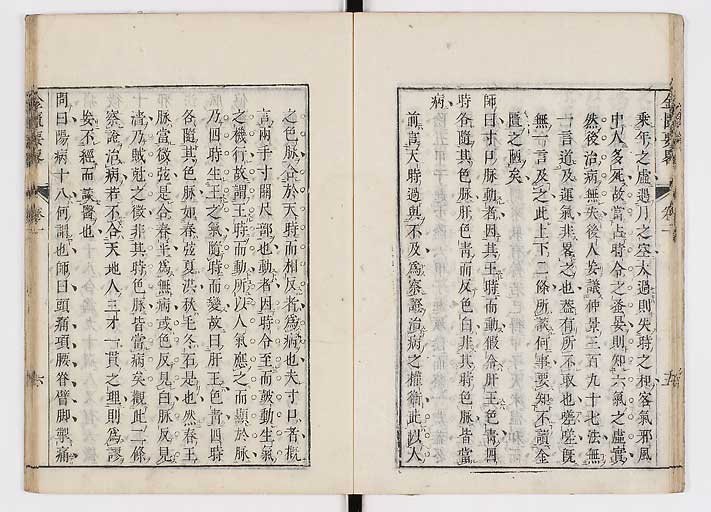 乘年之虛遇月之空太過則失時之和客氣邪風
中人多死故當占時令之蚤晏則知六氣之虛實
然後治病無失後人妄議仲景三百九十七法無
一言道及運氣非畧之也蓋有所不取也嗟嗟旣
無一言及之此上下二條所談何事要知不讀金
匱之陋矣
師曰寸口脉動者因其王時而動假令肝王色青四
時各隨其色肝色青而反色白非其時色脉皆當
病
前言天時過與不及爲察證治病之權衡此以人
金匱要畧
卷一
五
之色脉合於天時而相反者爲病也夫寸口者概
言兩手寸關尺部也動者因時令至而鼓動生氣
之機行故謂王時而動所以人氣應之而顯於脉
乃四時生王之氣隨時而變故曰肝王色青四時
各隨其色脉如春弦夏洪秋毛冬石是也然春王
脉當微弦是合春平爲無病或色反見白脉反見
濇乃賊尅之微非其時色脉皆當病矣觀此二條
察證治病若不合天地人三才一貫之理則爲謬
妄不經而談醫也
問曰陽病十八何謂也師曰頭痛項腰脊臂脚掣痛
金匱要畧
卷一
六